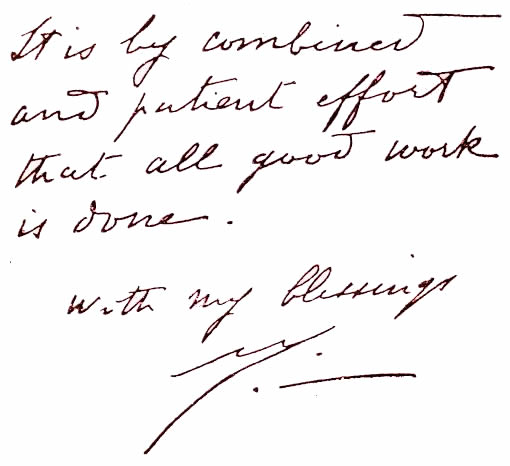 It is by combined
and patient effort
that all good work
is done.
With my blessings